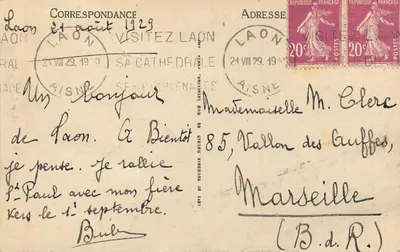 CORRESPONDANCE
Laon 21 août 1929
Un bonjour
de Laon. A Bientôt
je pense. Je rallie
St Paul avec mon fière
vers le 1er septembre.
ADRESSE
LAON
21 VIII 29
AISNE
VISITEZ LAON
SA CATHEDRALE
LAON
21 VIII 29. 19
AISNE
20c
20c
POSTES
Mademoiselle M. Clerc
85, Vallon des Auffes,
Marseille
(B. d. R.)